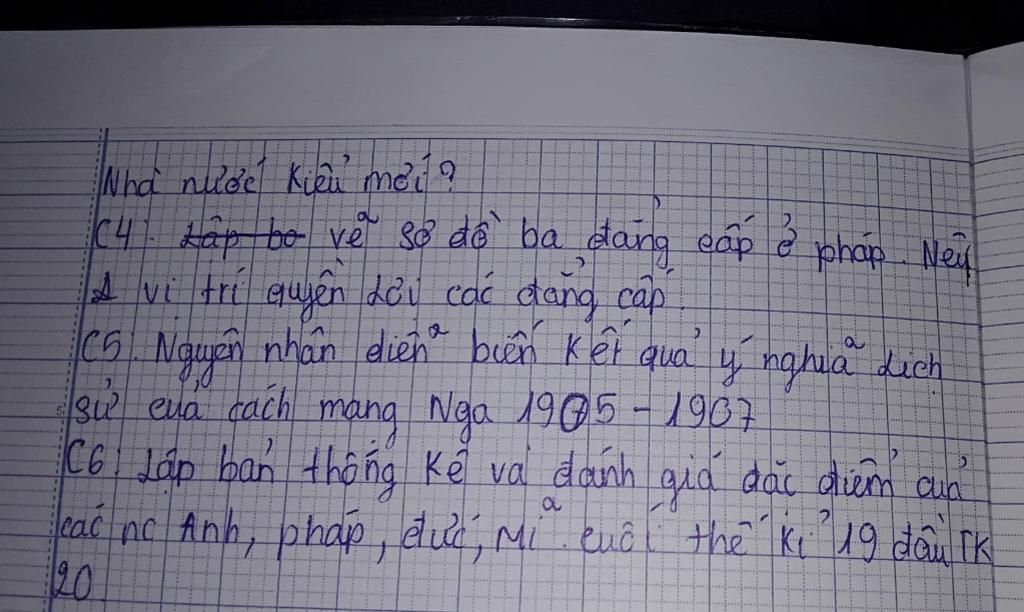 Nhà nước kiểu mới?
C4: Lập bo vẽ sơ đồ ba đẳng cấp ở pháp. Nêu
vị trí quyền lợi các đẳng cấp.
C5: Nguyên nhân diễn biến kết quả ý nghĩa lịch
sử của cách mạng Nga 1905-1907
C6: Lập bản thống kê và đánh giá đặc điểm của
các nc Anh, pháp, đức, Mĩ cuối thế kỉ 19 đầu TK
20